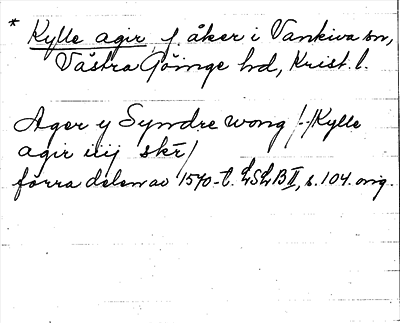 * Kylle agir, f. åker i Vankiva sn,
Västra Göinge hd, Krist. l.
Ager y Syndre wong /-/ Kylle
agir iiij skr̄ /
förra delen av 1570-t. LSLB II, s. 104. orig.